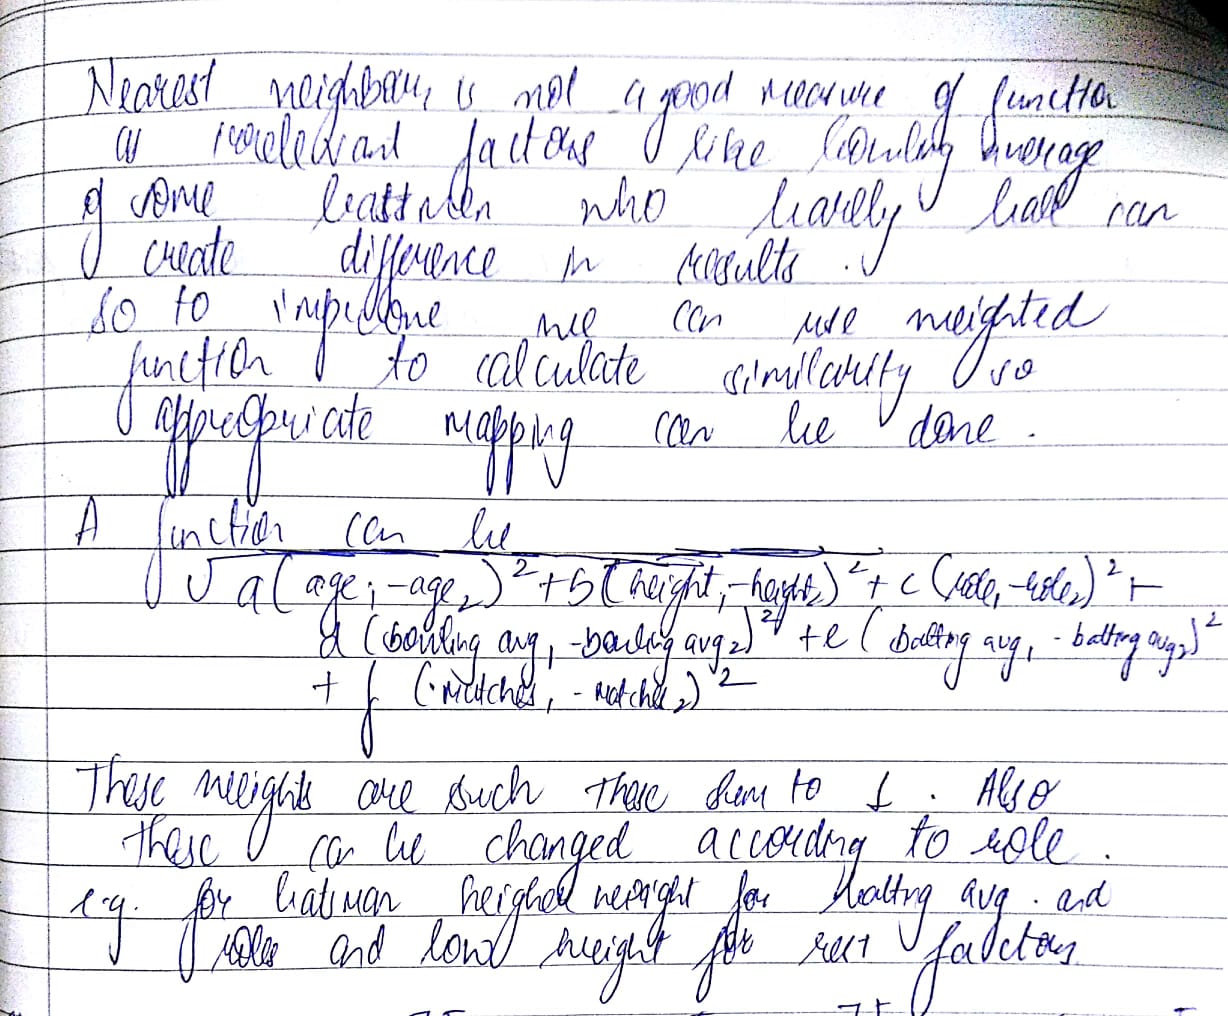 Nearest neighbour, is not a good measure of function
as irrelevant factors like bowling average
of some batsmen who barely ball can
create difference in results.
so to improve we can use weighted
function to calculate similarity so
appropriate mapping can be done.
A function can be
√a(age₁-age₂)²+b(height₁-height₂)²+c(role₁-role₂)²+
d(bowling avg₁-bowling avg₂)²+e(batting avg₁-batting avg₂)²
+f(matches₁-matches₂)²
These weights are such these sum to 1. Also
these can be changed according to role.
e.g. for batman heigher weight for batting avg. and
roles and low weight for rest factors